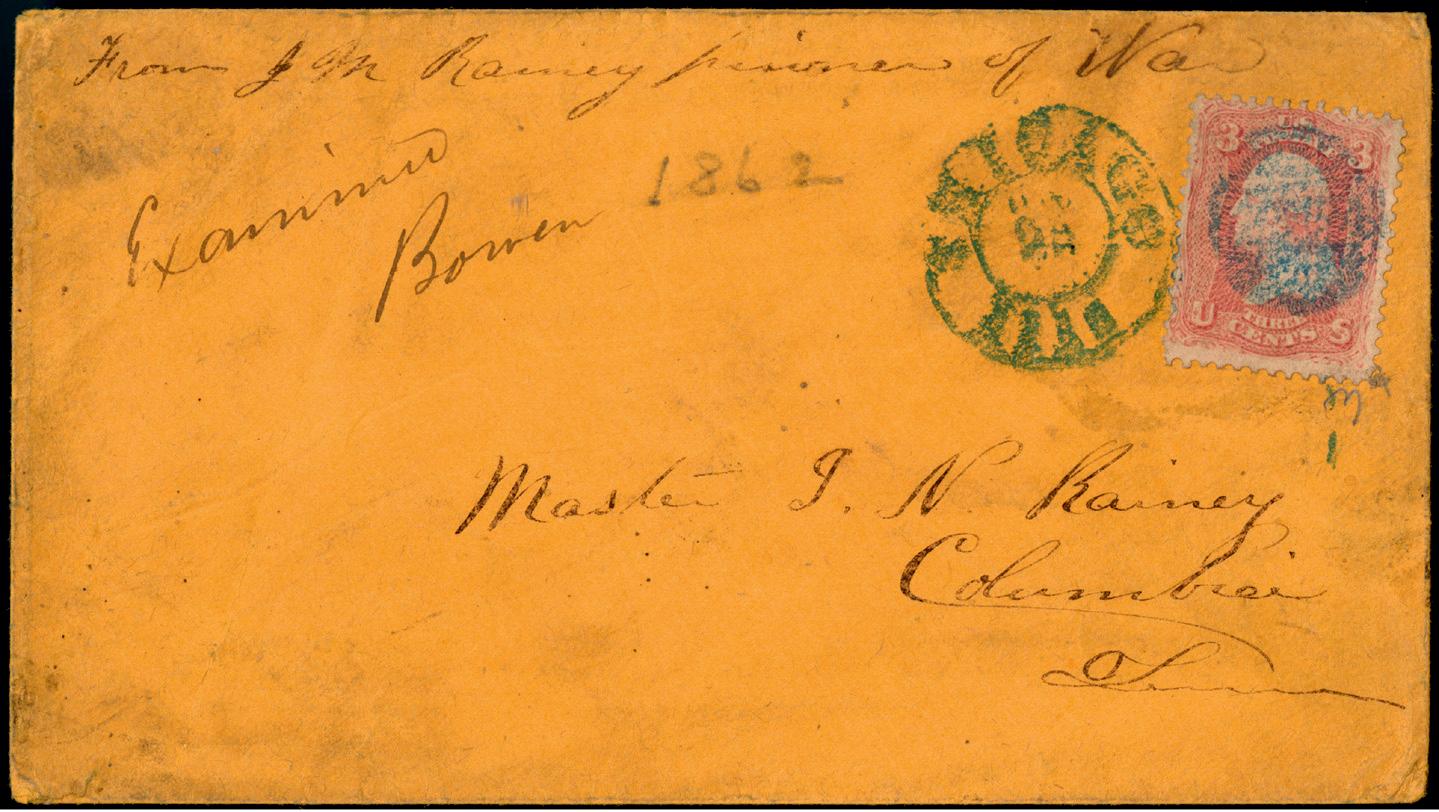 From J M Rainey prisoner of War
Examined
Bowen
1862
CHICAGO ILL
3 U.S. 3
THREE
U CENTS S
3
Master I. N. Rainey
Columbia
Tenn